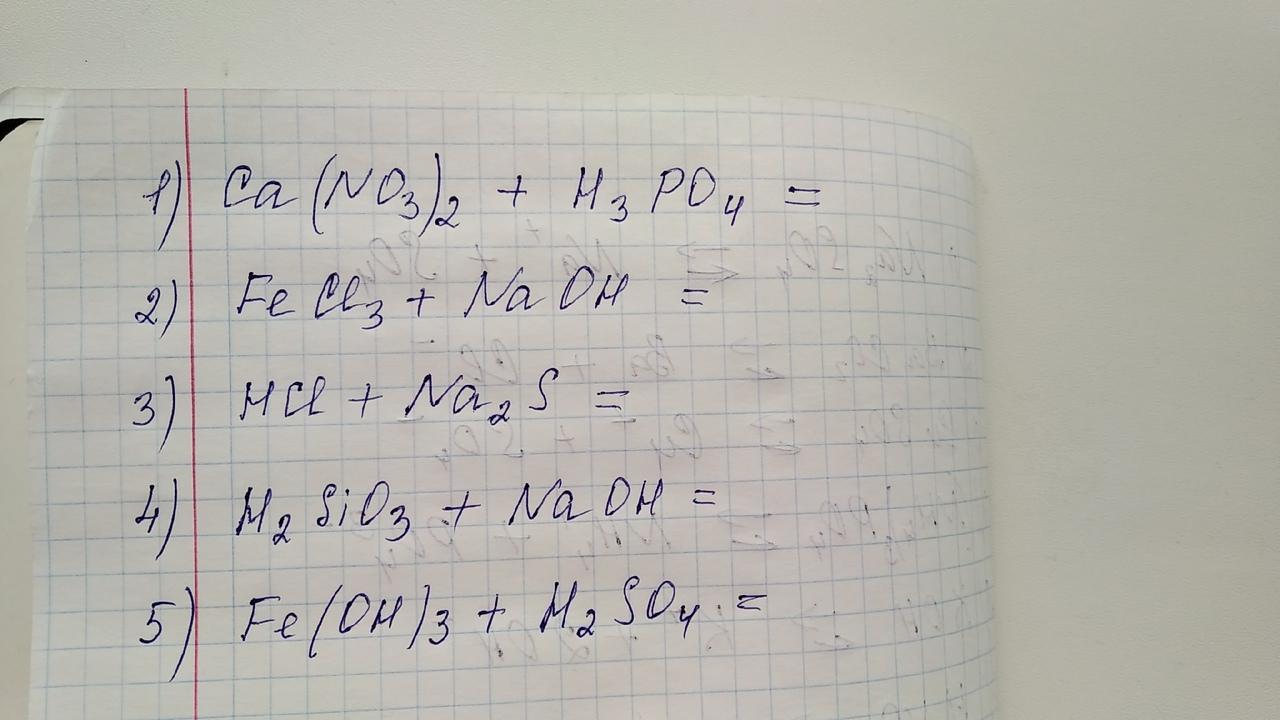 1) Ca(NO₃)₂ + H₃PO₄ =
2) FeCl₃ + NaOH =
3) HCl + Na₂S =
4) H₂SiO₃ + NaOH =
5) Fe(OH)₃ + H₂SO₄ =